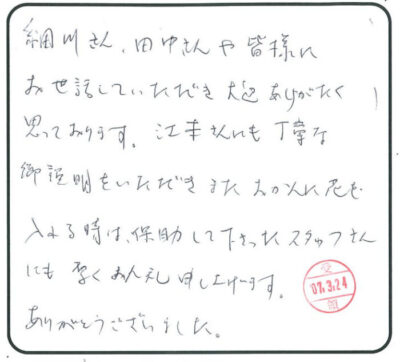 細川さん、田中さんや皆様に
お世話していただき大変ありがたく
思っております。江本さんにも丁寧な
御説明をいただきまた おかんに花を
入れる時は、保助して下さったスタッフさん
にも 厚くお礼申し上げます。
ありがとうございました。
07.3.24